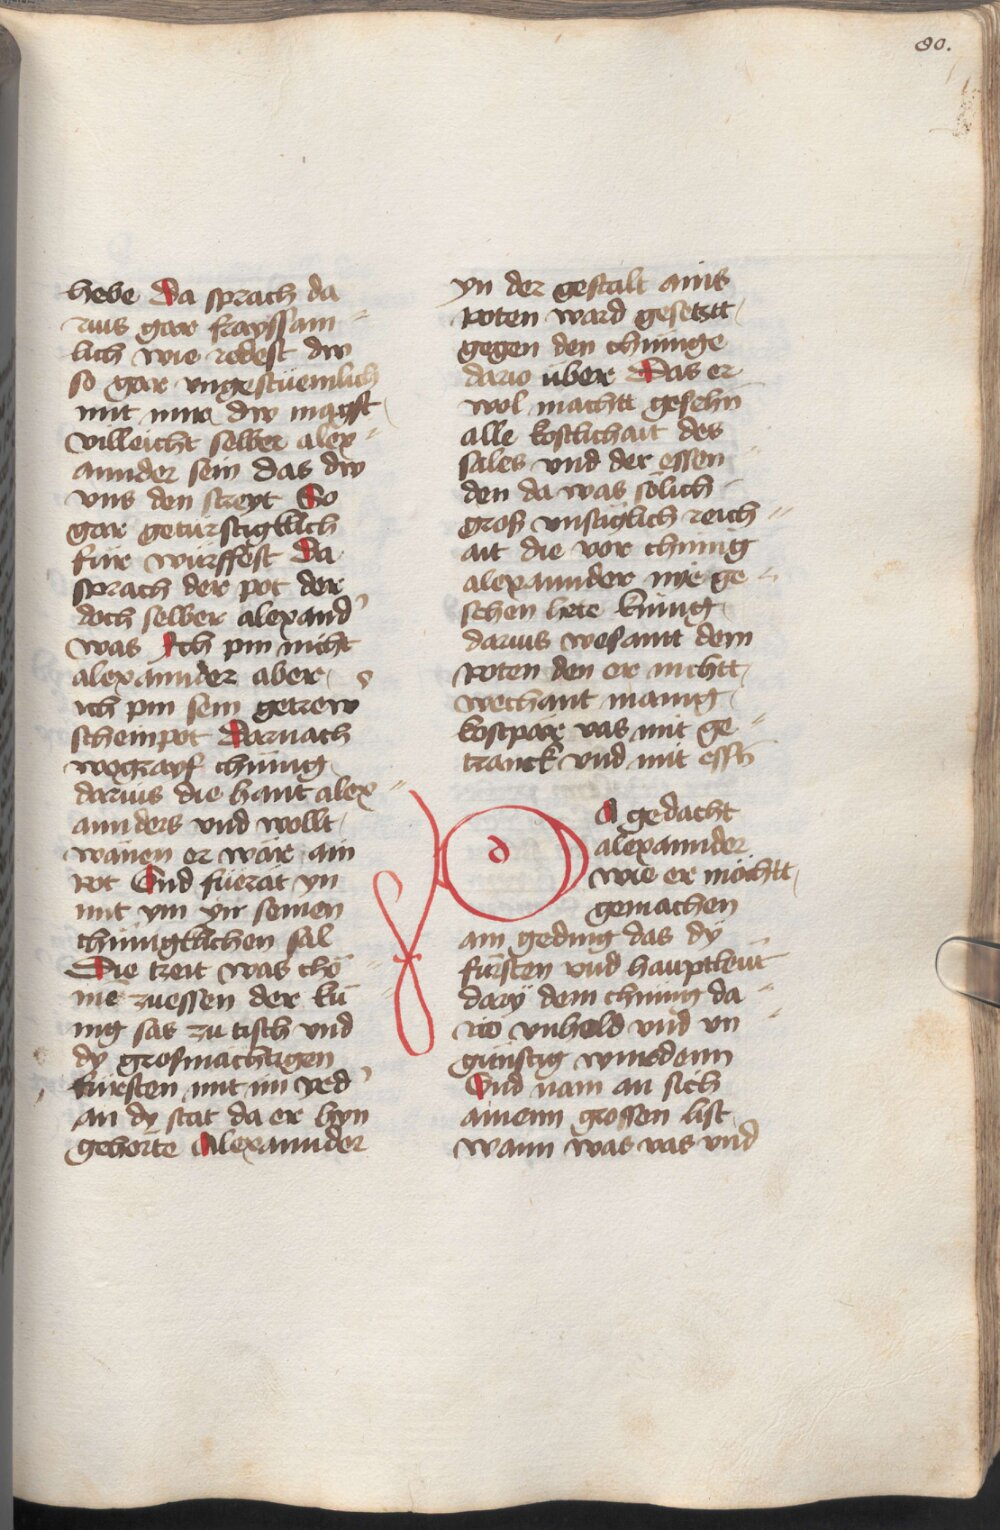 80.
hebe Da sprach da
rius gar frayssam =
lich wie redest dw
so gar vngestüemlich
mit mir dw magst
villeicht selber alex =
annder sein das dw
vns den streyt So
gar getürstigklich
für würffest Da
sprach der pot der
doch selber alexand'
was Ich pin nicht
alexannder aber
ich pin sein getrew
scheinpot Darnach
wegrayf chünig
darius die hant alex =
annders vnd wollt
wänen er wär ain
pot Vnd füerät yn
mit ym yn seinen
chünigklichen sal
Die tzeit was chö =
me zuessen der kü
nig sas zu tisch vnd
dy grosmachtigen
fürsten mit im yed'
an dy stat da er hyn
gehorte Alexannder
yn der gestalt ains
poten ward gesetztt
gegen den chünige
dario über Das er
wol machtt gesehn
alle kostlichait des
sales vnd der essen =
den da was sölich =
gros vnsäglich reich =
ait die vor chünig
alexannder nye ge =
sehen hete künig
darius wesannt dem
poten den er nichtt
wechant manig
kostpär vas mit ge =
tranck vnd mit essn
d
A gedacht
alexannder
wie er möchtt
gemachen
ain geding das dy
fürsten vnd hauptleut
dary dem chünig da =
rio vnhold vnd vn =
günstig wurdenn
Vnd nam an sich
ainenn grossen list
wann was vas vnd